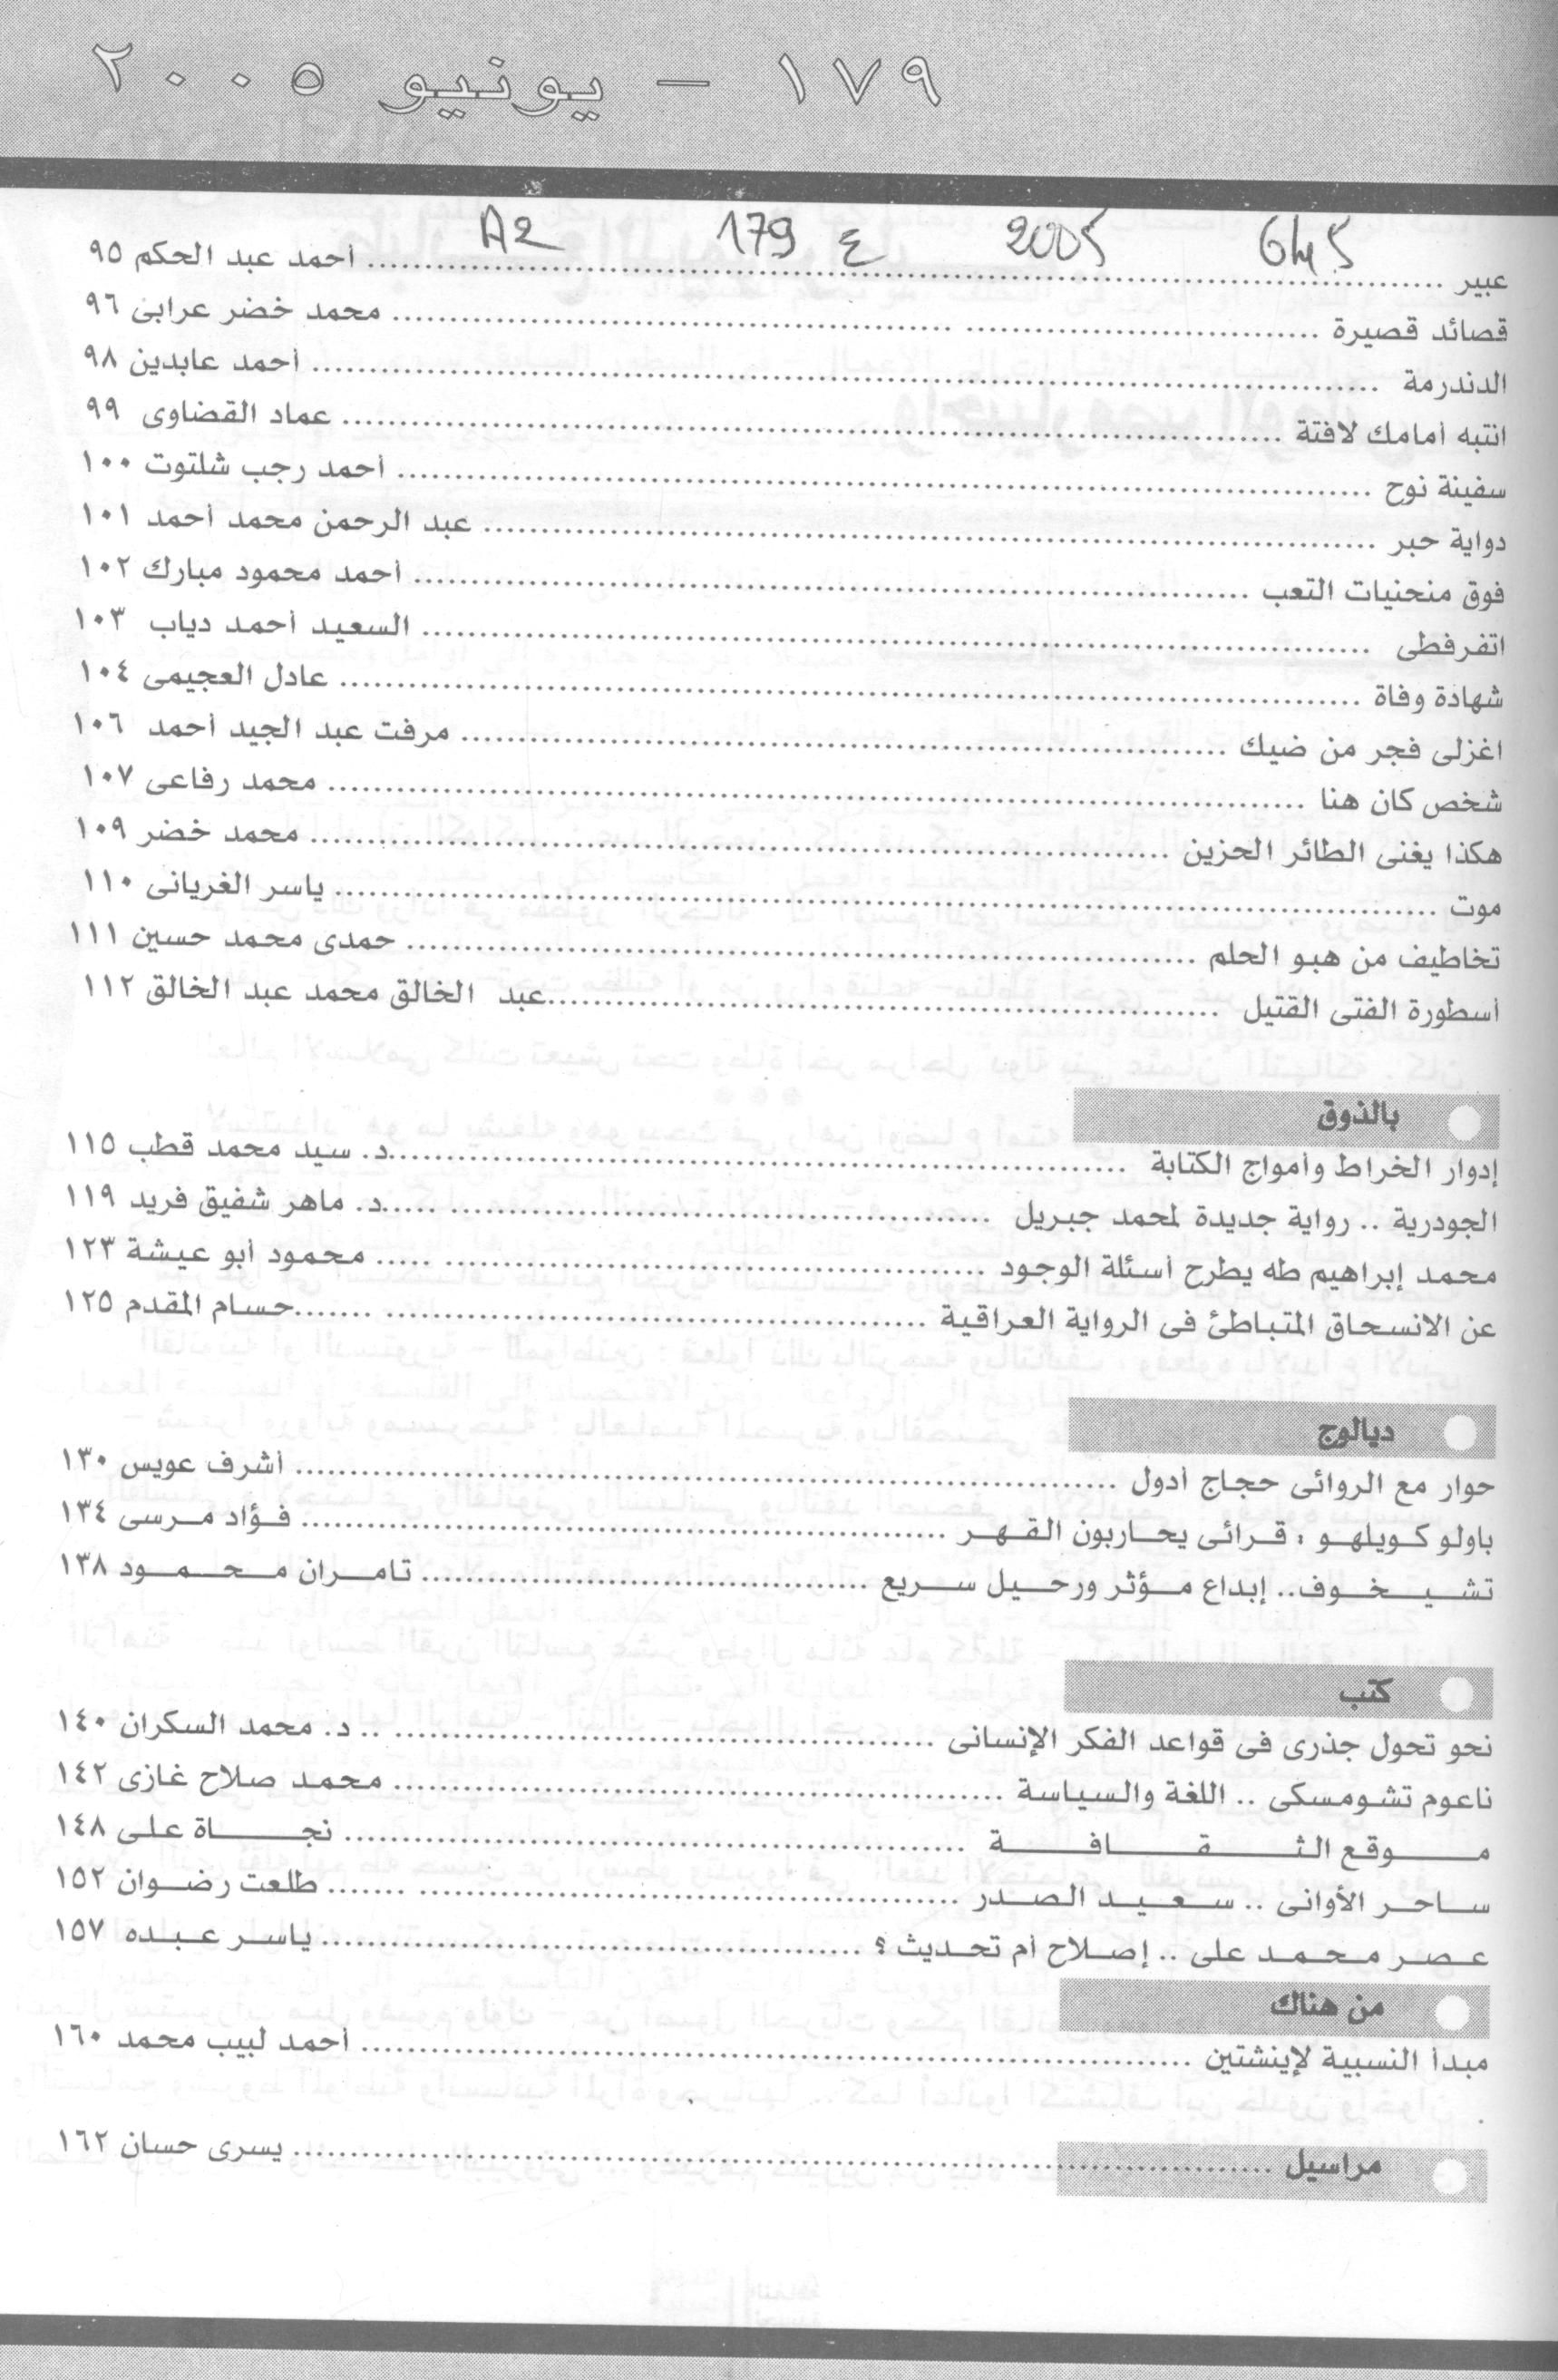 ١٧٩ - يونيو ٢٠٠٥
645 2005 ع 179 A2
عبير .......... أحمد عبد الحكم ٩٥
قصائد قصيرة .......... محمد خضر عرابى ٩٦
الدندرمة .......... أحمد عابدين ٩٨
انتبه أمامك لافتة .......... عماد القضاوى ٩٩
سفينة نوح .......... أحمد رجب شلتوت ١٠٠
دواية حبر .......... عبد الرحمن محمد أحمد ١٠١
فوق منحنيات التعب .......... أحمد محمود مبارك ١٠٢
اتفرفطى .......... السعيد أحمد دياب ١٠٣
شهادة وفاة .......... عادل العجيمى ١٠٤
اغزلى فجر من ضيك .......... مرفت عبد الجيد أحمد ١٠٦
شخص كان هنا .......... محمد رفاعى ١٠٧
هكذا يغنى الطائر الحزين .......... محمد خضر ١٠٩
موت .......... ياسر الغريانى ١١٠
تخاطيف من هبو الحلم .......... حمدى محمد حسين ١١١
أسطورة الفتى القتيل .......... عبد الخالق محمد عبد الخالق ١١٢
بالذوق
إدوار الخراط وأمواج الكتابة .......... د. سيد محمد قطب ١١٥
الجودرية .. رواية جديدة لمحمد جبريل .......... د. ماهر شفيق فريد ١١٩
محمد إبراهيم طه يطرح أسئلة الوجود .......... محمود أبو عيشة ١٢٣
عن الانسحاق المتباطئ فى الرواية العراقية .......... حسام المقدم ١٢٥
ديالوج
حوار مع الروائى حجاج أدول .......... أشرف عويس ١٣٠
باولو كويلهو : قرائى يحاربون القهر .......... فؤاد مرسى ١٣٤
تشيخوف.. إبداع مؤثر ورحيل سريع .......... تامران محمود ١٣٨
كتب
نحو تحول جذرى فى قواعد الفكر الإنسانى .......... د. محمد السكران ١٤٠
ناعوم تشومسكى .. اللغة والسياسة .......... محمد صلاح غازى ١٤٢
موقع الثقافة .......... نجاة على ١٤٨
ساحر الأوانى .. سعيد الصدر .......... طلعت رضوان ١٥٢
عصر محمد على .. إصلاح أم تحديث ؟ .......... ياسر عبده ١٥٧
من هناك
مبدأ النسبية لإينشتين .......... أحمد لبيب محمد ١٦٠
مراسيل .......... يسرى حسان ١٦٢